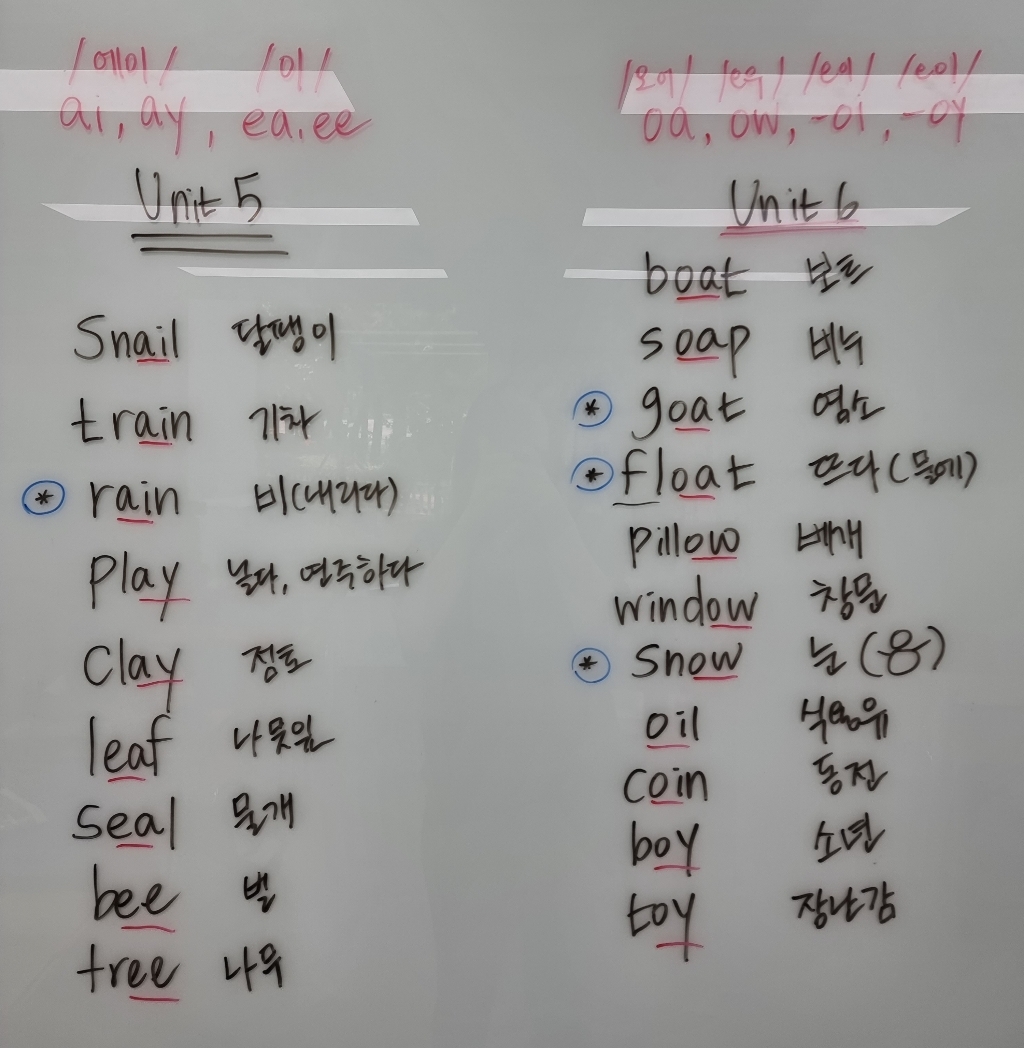 /에이/ /이/
ai, ay, ea, ee
Unit 5
Snail 달팽이
train 기차
* rain 비(내리다)
play 놀다, 연주하다
Clay 점토
leaf 나뭇잎
seal 물개
bee 벌
tree 나무
/오어/ /오우/ /오이/ /오이/
oa, ow, -oi, -oy
Unit 6
boat 보트
soap 비누
* goat 염소
* float 뜨다(물에)
pillow 베개
window 창문
* snow 눈
oil 석유
coin 동전
boy 소년
toy 장난감